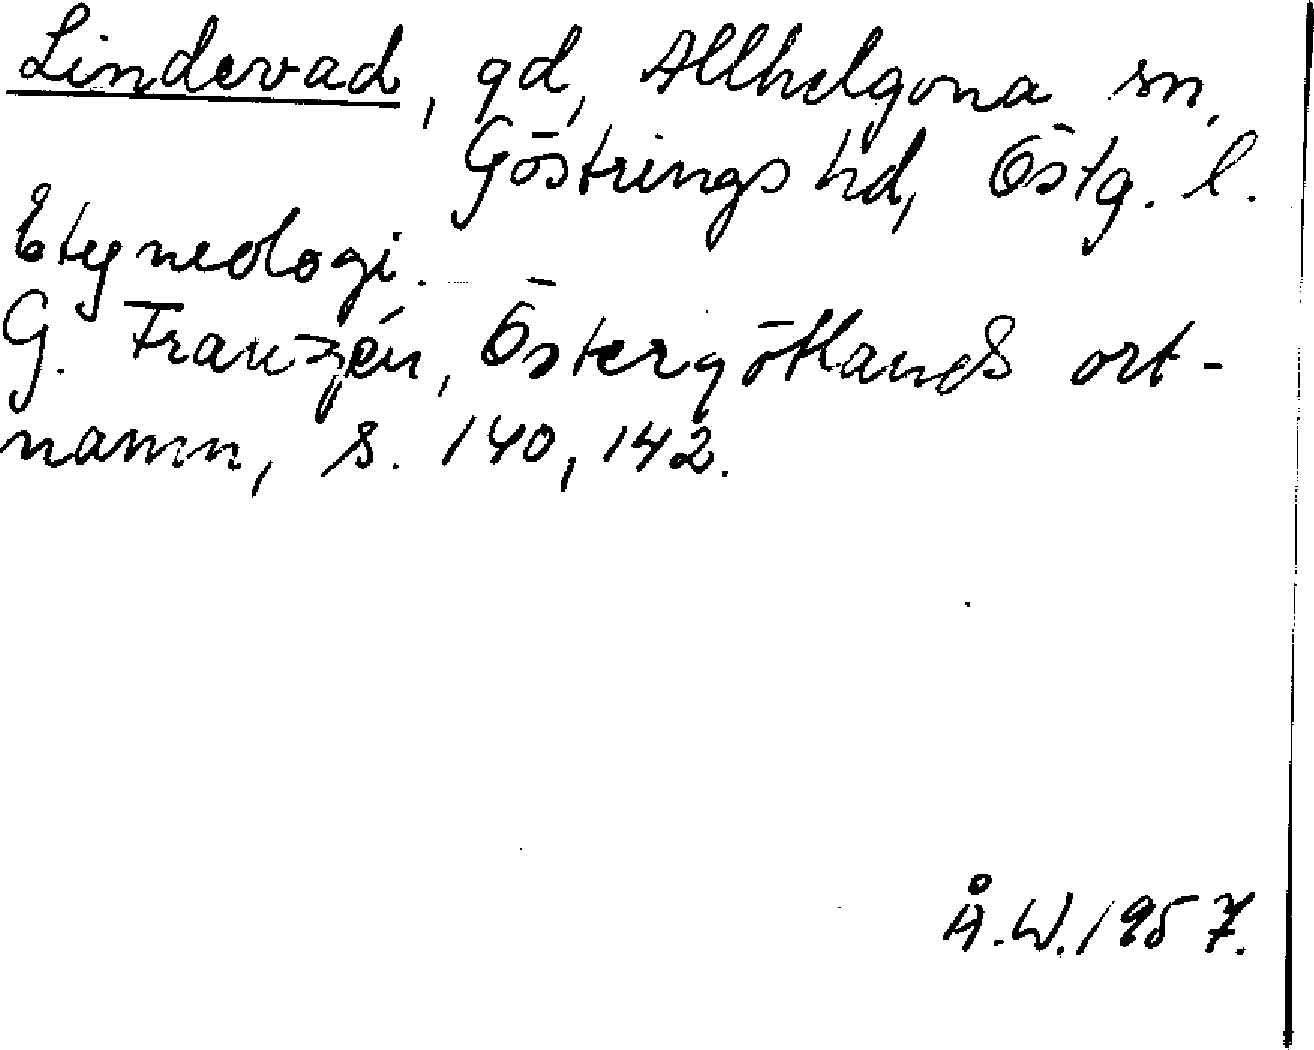 Lindevad, gd, Allhelgona sn,
Göstrings hd, Östg. l.
Etymologi.
G. Franzén, Östergötlands ort-
namn, s. 140, 142.
Å.W. 1957.